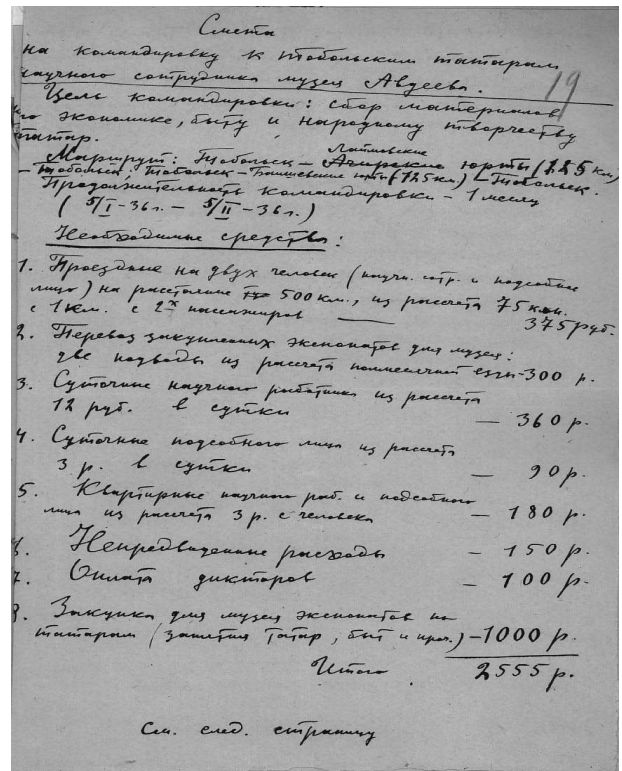 Смета
на командировку к тобольским татарам
научного сотрудника музея Авдеева.
19
Цель командировки: сбор материалов
по экономике, быту и народному творчеству
татар.
Маршрут: Тобольск – Ачирские юрты (125 км)
– Тобольск; Тобольск – юрты (125 км) – Тобольск.
Продолжительность командировки – 1 месяц
(5/I-36 г. – 5/II-36 г.)
Необходимые средства:
1. Проездные на двух человек (научн. сотр. и подсобное
лицо) на расстояние 500 км., из рассчета 75 коп.
с 1 км. с 2х пассажиров — 375 руб.
2. Перевоз закупленных экспонатов для музея:
две подводы из рассчета езды - 300 р.
3. Суточные научного работника из рассчета
12 руб. в сутки — 360 р.
4. Суточные подсобного лица из рассчета
3 р. в сутки — 90 р.
5. Квартирные научного раб. и подсобного
лица из рассчета 3 р. с человека – 180 р.
6. Непредвиденные расходы – 150 р.
7. Оплата дикторов – 100 р.
8. Закупка для музея экспонатов по
татарам (занятия татар, быт и проч.) – 1000 р.
Итого 2555 р.
См. след. страницу